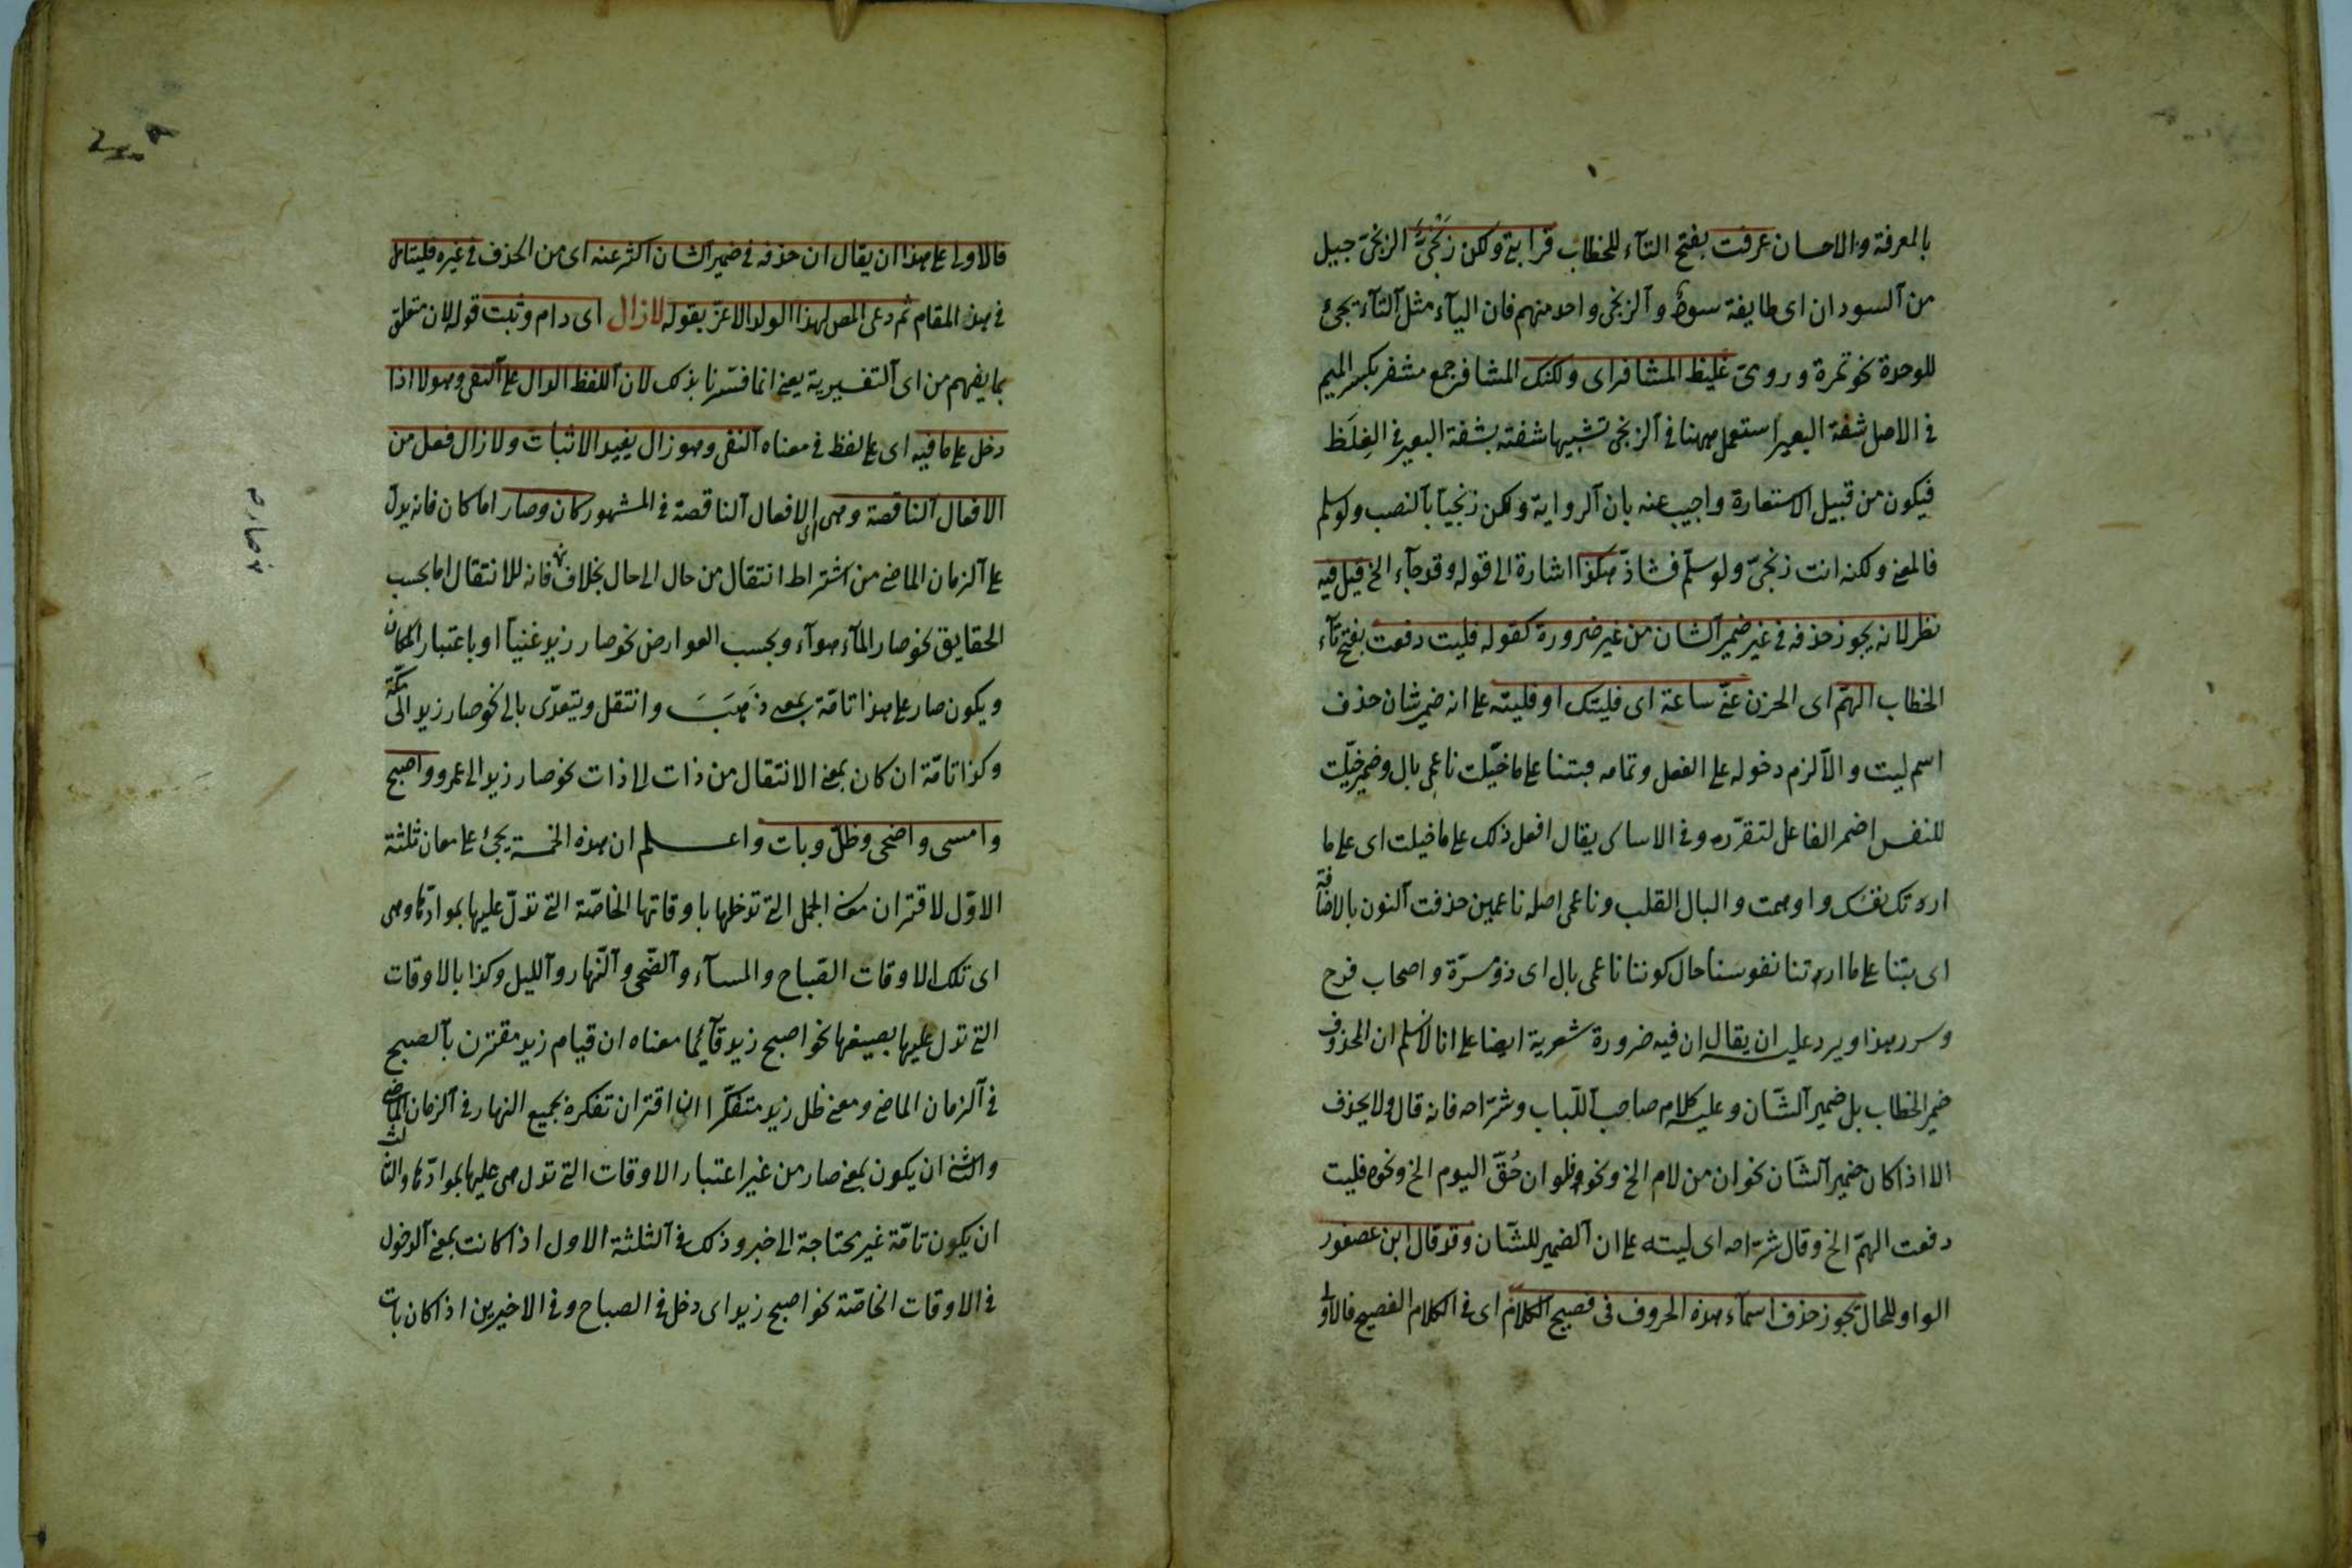 بالمعرفة والاحسان عرفت بفتح التآء للخطاب قرابتى ولكن زنجىّ الزنجىّ جيل
من آلسودان اى طايفة سودٌ وآلزنجى واحد منهم فان اليآء مثل آلتآء تجئ
للوحدة نحو تمرة وروى غليظ المشافر اى ولكنك المشافر جمع مشفر بكسر الميم
فى الاصل شفة البعير استعمل ههنا فى آلزنجى تشبيها شفته بشفة البعير فى الغِلَظ
فيكون من قبيل الاستعارة واجيب عنه بان آلرواية ولكن زنجيآ بآلنصب ولو سلم
فالمعنى ولكنه انت زنجىّ ولو سلّم فشاذّ هكذا اشارة الى قوله وقد جآء الخ قيل فيه
نظر لانه يجوز حذفه فى غير ضمير آلشان من غير ضرورة كقوله فليت دفعت بفتح تآء
الخطاب الهمّ اى الحزن عنّى ساعة اى فليتك او فليته على انه ضمير شان حذف
اسم ليت والّا لزم دخوله على الفعل وتمامه فبتنا على ما خيّلت ناعمى بال وضمير خيّلت
للنفس اضمر الفاعل لتقرّره وفى الاساس يقال افعل ذلك على ما خيلت اى على ما
ارتك نفسك واوهمت والبال القلب وناعمى اصله ناعمين حذفت آلنون بالاضافة
اى بتنا على ما ارتنا نفوسنا حال كوننا ناعمى بال اى ذو مسرّة واصحاب فرح
وسرر هذا ويرد عليه ان يقال ان فيه ضرورة شعرية ايضا على انا لا نسلم ان المحذوف
ضمير الخطاب بل ضمير آلشّان وعليه كلام صاحب آللّباب وشرّاحه فانه قال ولا يحذف
الا اذا كان ضمير آلشّان نحو ان من لام الخ ونحو فلو ان حُقّ اليوم الخ ونحوه فليت
دفعت الهمّ الخ وقال شرّاحه اى ليته على ان آلضمير للشّان وقد قال ابن عصفور
الواو للحال يجوز حذف اسمآء هذه الحروف فى فصيح آلكلام اى فى الكلام الفصيح فالاولى
فالاولى على هذا ان يقال ان حذفه فى ضمير آلشان اكثر عنه اى من الحذف فى غيره فليتامل
فى هذا المقام ثم دعى المص لهذا الولد الاعزّ بقوله لازال اى دام وثبت قوله لان متعلق
بما يفهم من اى آلتفسيرية يعنى انما فسّرنا بذلك لان آللفظ الدال على آلنفى وهو لا اذا
دخل على ما فيه اى على لفظ فى معناه آلنفى وهو زال يفيد الاثبات ولا زال فعل من
الافعال آلناقصة وهى اى الافعال آلناقصة فى المشهور كان وصار اما كان فانه يدلّ
على آلزمان الماضى من اشتراط انتقال من حال الى حال بخلاف فانه للانتقال اما بحسب
الحقايق نحو صار المآء هوآء وبحسب العوارض نحو صار زيد غنيآ او باعتبار المكان
ويكون صار على هذا تامّة بمعنى ذَهَبَ وانتقل ويتعدّى بالى نحو صار زيد الى مكّة
وكذا تامّة ان كان بمعنى الانتقال من ذات الى ذات نحو صار زيد الى عمرو واصبح
وامسى واضحى وظلّ وبات واعلم ان هذه الخمسة يجئ على معان ثلثة
الاوّل لاقتران معنى الجمل التى تدخلها باوقاتها الخاصّة التى تدلّ عليها بموادّها وهى
اى تلك الاوقات الصّباح والمسآء وآلضّحى وآلنّهار وآلليل وكذا بالاوقات
التى تدل عليها بصيغها نحو اصبح زيد قآئما معناه ان قيام زيد مقترن بآلصبح
فى آلزمان الماضى ومعنى ظل زيد متفكّرا ان اقتران تفكره بجميع النهار فى آلزمان الماضى
والثانى ان يكون بمعنى صار من غير اعتبار الاوقات التى تدل هى عليها بموادّها والثالث
ان يكون تامّة غير محتاجة الى خبر وذلك فى آلثلثة الاول اذا كانت بمعنى آلدخول
فى الاوقات الخاصّة نحو اصبح زيد اى دخل فى الصباح وفى الاخيرين اذا كان بات